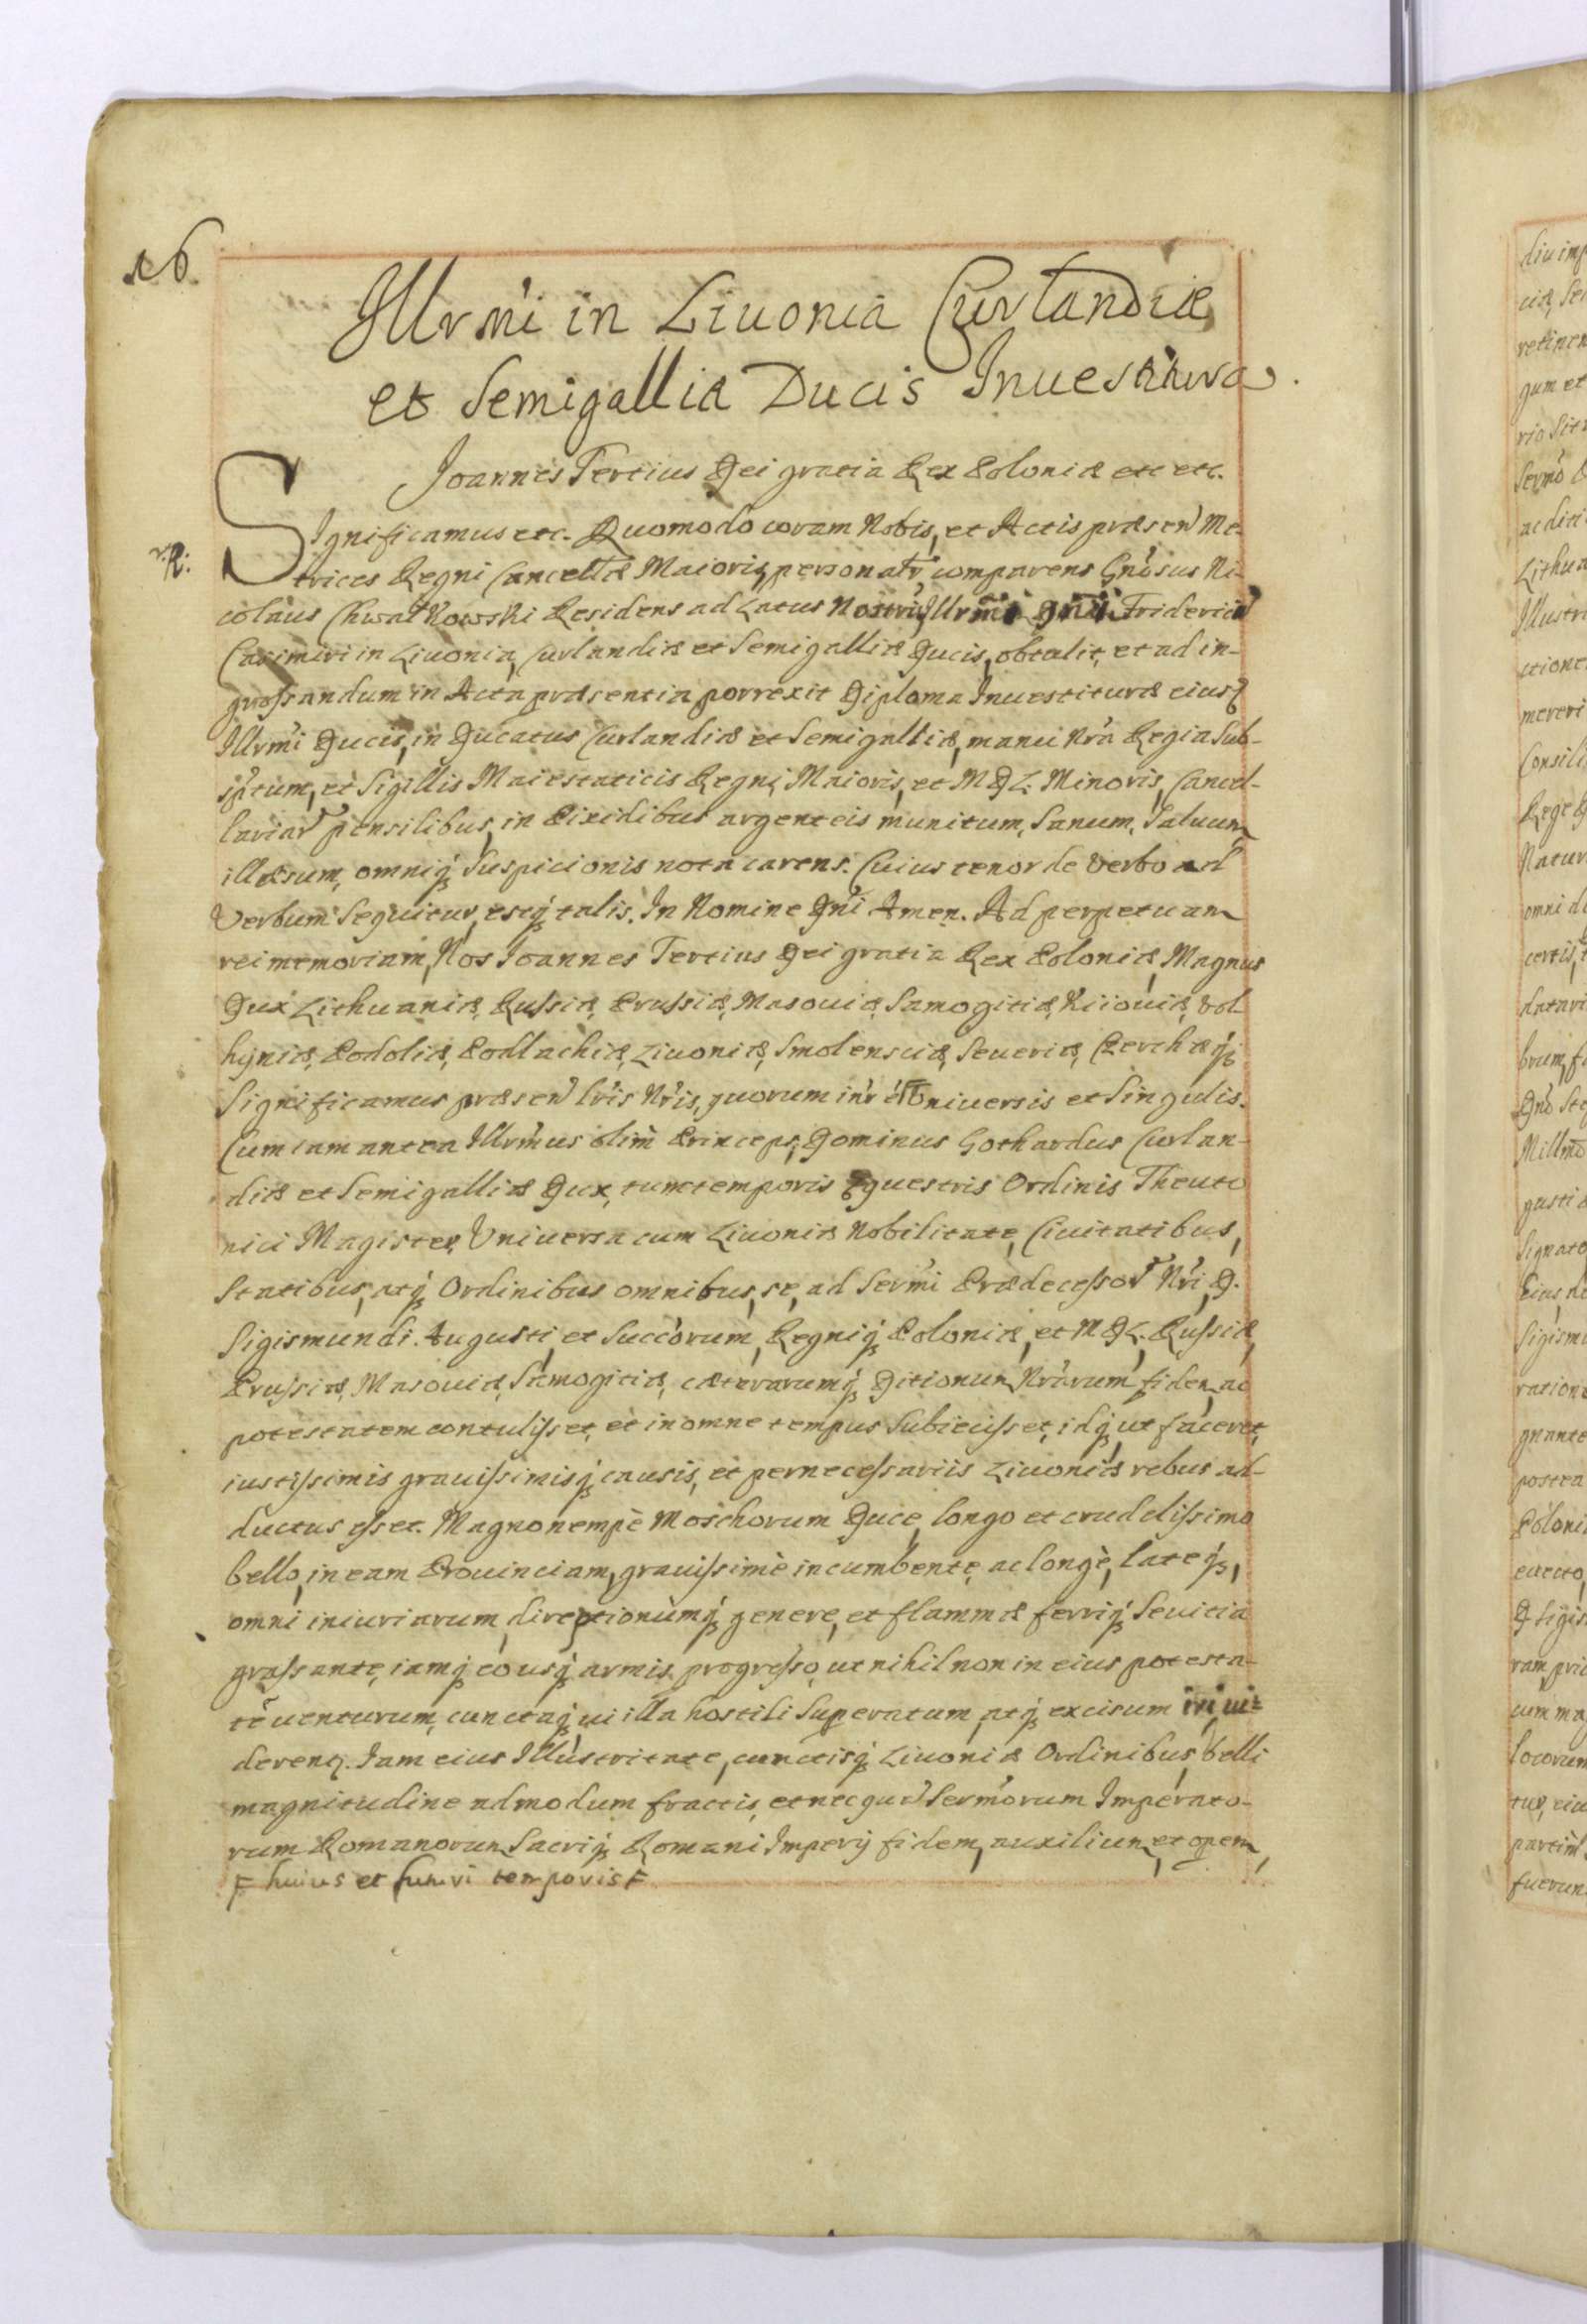 16
Illrmi in Liuonia Curlandiæ
et Semigalliæ Ducis Inuestitura.
Joannes Tertius Dei gratia Rex Poloniæ etc etc.
R:
Significamus etc. Quomodo coram Nobis, et Actis præsen Me-
trices Regni Cancellæ Maioris, personatr comparens Gnosus Ni-
colaus Chwalkowski Residens ad Latus Nostrũ, Illrmi Dni Friderici
Casimiri in Liuonia, Curlandiæ et Semigalliæ Ducis, obtulit, et ad in-
grossandum in Acta præsentia porrexit Diploma Inuestituræ eiusd
Illrmi Ducis, in Ducatus Curlandiæ et Semigalliæ, manu Nra Regia Sub-
sptum, et Sigillis Maiestaticis Regni Maioris, et M D L. Minoris, Cancel-
lariar pensilibus, in Pixidibus argenteis munitum, Sanum, Saluum
illæsum, omniq; Suspicionis nota carens. Cuius tenor de Verbo ad
Verbum Sequitur, estq; talis. In Nomine Dni Amen. Ad perpetuam
rei memoriam, Nos Joannes Tertius Dei gratia Rex Poloniæ, Magnus
Dux Lithuaniæ, Russiæ, Prussiæ, Masouiæ, Samogitiæ, Kiiouiæ, Vol-
hyniæ, Podoliæ, Podlachiæ, Liuoniæ, Smolensciæ, Seueriæ, Czerchæq;
Significamus præsen lris Nris, quorum intr est Vniuersis et Singulis.
Cum iam antea Illrmus olim Princeps, Dominus Gothardus Curlan-
diæ et Semigalliæ Dux, tunc temporis Equestris Ordinis Theuto
nici Magister, Vniuersa cum Liuoniæ Nobilitate, Ciuitatibus,
Statibus, atq; Ordinibus omnibus, se, ad Sermi Prædecessor Nri, D.
Sigismundi Augusti, et Succorum, Regniq; Poloniæ, et M D L. Russiæ,
Prussiæ, Masouiæ, Samogitiæ, cæterarumq; Ditionum Nrarum fidem, ac
potestatem contulisset, et in omne tempus Subiecisset, idq; ut faceret,
iustissimis grauissimisq; causis, et pernecessariis Liuoniæ rebus ad-
ductus esset. Magno nempè Moschorum Duce, longo et crudelissimo
bello, in eam Prouinciam, grauissimè incumbente, ac longè, lateq;,
omni iniuriarum, direptionumq; genere, et flammæ ferriq; Seuitia
grassante, iamq; eousq; armis progresso, ut nihil non in eius potesta-
tẽ uenturum, cunctaq; ui illa hostili Superatum, atq; excisum iri, ui-
derent. Iam eius Illustritate, cunctisq; Liuoniæ Ordinibus, belli
magnitudine admodum fractis, et necquid Sermorum Imperato-
rum Romanorum Sacriq; Romani Imperij fidem, auxilium, et opem,
F huius et futuri temporis F
diu imp
ciæ, Se
retinen
gum et
rio Sit
Sermo
ac diti
Lithua
Illustri
ctione
mereri
Consili
Rege
Natur
omni d
certis,
datari
brum, f
Dno Ste
Millmo
gusti
Signato
Eius, d
Sigism
ration
gnante
postea
Poloni
euecto,
D Sigis
ram pri
cum ma
locorum
tur, eiu
partim
fuerun